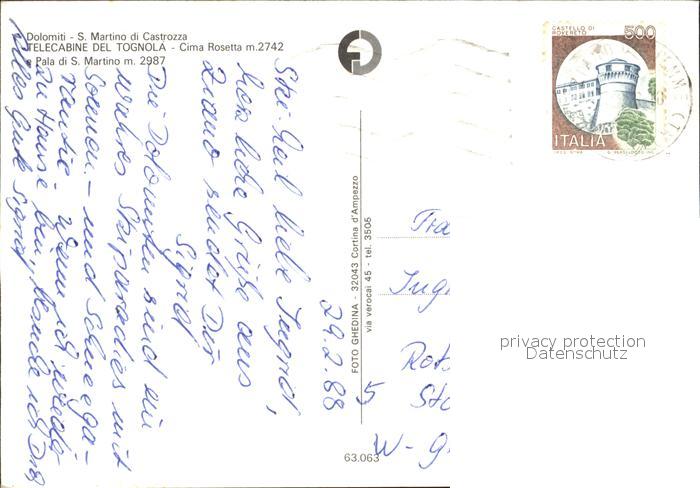 Dolomiti - S. Martino di Castrozza
TELECABINE DEL TOGNOLA - Cima Rosetta m.2742
e Pala di S. Martino m. 2987
CASTELLO DI
ROVERETO
500
ITALIA
29.2.88
Ski-Heil liebe Ingrid,
herzliche Grüße aus
sendet Dir
Sigrid
Die Dolomiten sind ein
wahres Skiparadies mit
Sonnen- und Schneega-
rantie. Wenn ich wieder
zu Hause bin, melde ich mich
Alles Gute Sigrid,
FOTO GHEDINA - 32043 Cortina d'Ampezzo
via verocai 45 - tel. 3505
63.063
Fra
Ingr
Rots
5 Sto
W-
privacy protection
Datenschutz